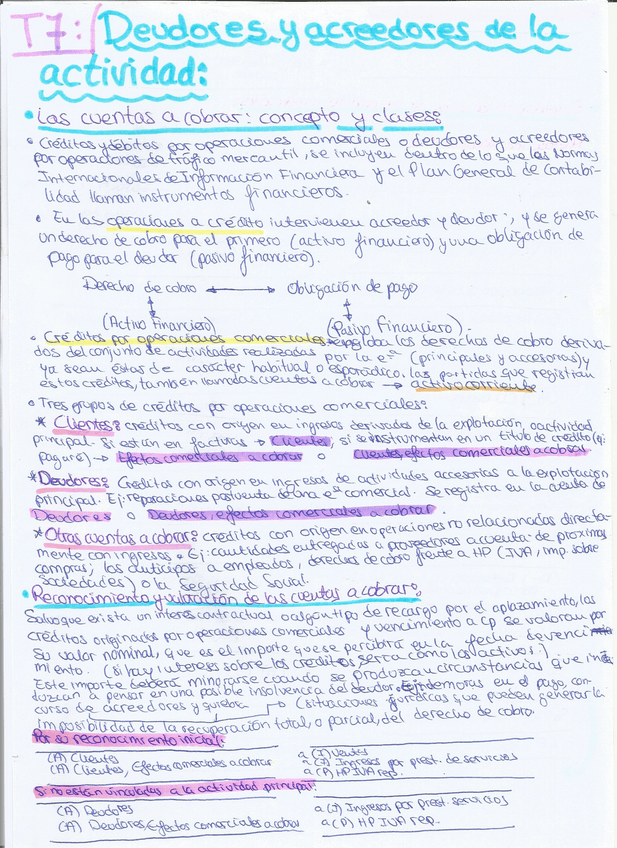 T7: Deudores y acreedores de la
actividad:
• Las cuentas a cobrar: concepto y clases:
• Créditos y débitos por operaciones comerciales o deudores y acreedores
por operaciones de tráfico mercantil, se incluyen dentro de lo que las Normas
Internacionales de Información Financiera y el Plan General de Contabi-
lidad llaman instrumentos financieros.
• En las operaciones a crédito intervienen acreedor y deudor, y se genera
un derecho de cobro para el primero (activo financiero) y una obligación de
pago para el deudor (pasivo financiero).
Derecho de cobro ↔ Obligación de pago
(Activo Financiero) (Pasivo Financiero).
• Créditos por operaciones comerciales engloba los derechos de cobro deriva-
dos del conjunto de actividades realizadas por la eª (principales y accesorias) y
ya sean éstas de carácter habitual o esporádico. las partidas que registran
estos créditos, también llamadas cuentas a cobrar → activo corriente.
• Tres grupos de créditos por operaciones comerciales:
* Clientes: créditos con origen en ingresos derivados de la explotación, o actividad
principal. Si están en facturas → Clientes, si se instrumentan en un título de crédito (ej:
pagaré) → Efectos comerciales a cobrar o Clientes, efectos comerciales a cobrar
* Deudores: Créditos con origen en ingresos de actividades accesorias a la explotación
principal. Ej: reparaciones postventa de una eª comercial. Se registra en la cuenta de
Deudores o Deudores, efectos comerciales a cobrar
* Otras cuentas a cobrar: créditos con origen en operaciones no relacionadas directa-
mente con ingresos. Ej: cantidades entregadas a proveedores a cuenta de próximas
compras; los anticipos a empleados, derechos de cobro frente a HP (IVA, imp. sobre
sociedades) o la Seguridad Social.
• Reconocimiento y valoración de las cuentas a cobrar:
Salvo que exista un interés contractual o algún tipo de recargo por el aplazamiento, los
créditos originados por operaciones comerciales y vencimiento a cp se valoran por
su valor nominal, que es el importe que se percibirá en la fecha de venci
miento. (si hay intereses sobre los créditos será como los activos.)
Este importe deberá minorarse cuando se produzcan circunstancias que in
duzcan a pensar en una posible insolvencia del deudor. Ej: demoras en el pago, con-
curso de acreedores y quiebra (situaciones jurídicas que pueden generar la
imposibilidad de la recuperación total, o parcial, del derecho de cobro.
Por su reconocimiento inicial:
(A) Clientes a (I) Ventas
(A) Clientes, Efectos comerciales a cobrar a (I) Ingresos por prest. de servicios
a (P) HP IVA rep.
Si no están vinculadas a la actividad principal:
(A) Deudores a (I) Ingresos por prest. servicios
(A) Deudores, Efectos comerciales a cobrar a (P) HP IVA rep.